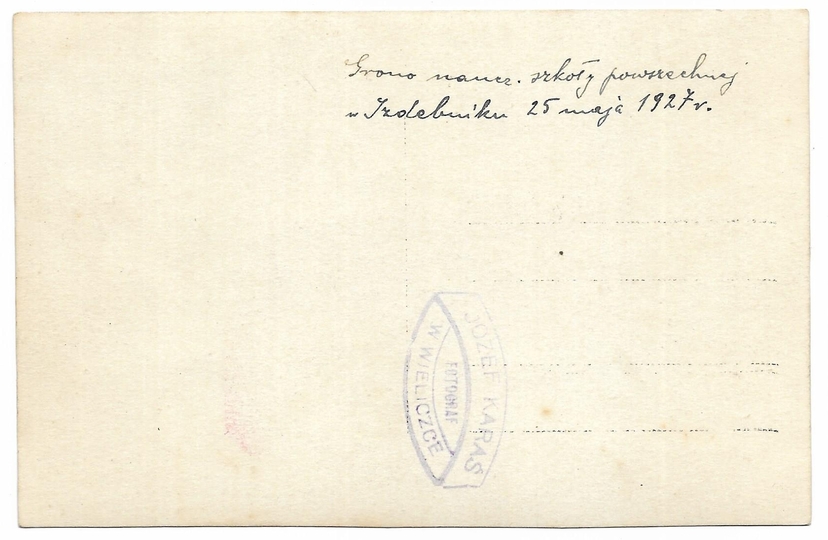 Grono naucz. szkoły powszechnej
w Izdebniku 25 maja 1927 r.
JÓZEF KARAŚ
FOTOGRAF
W WIELICZCE